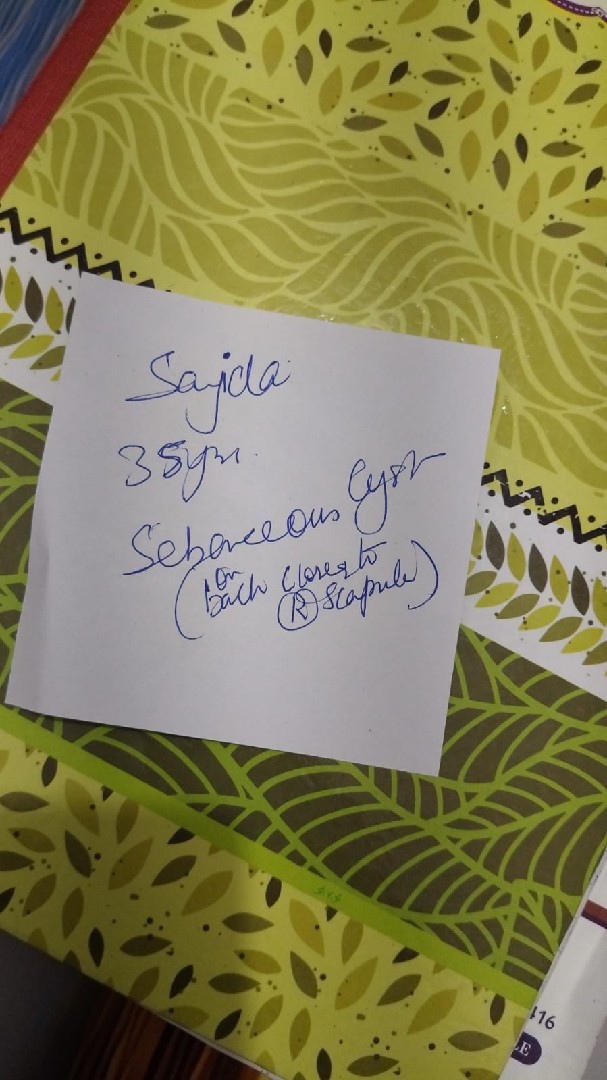 Sajida
35yrs.
Sebaceous Cyst
(on back closer to
Ⓡ Scapula)
416
LE